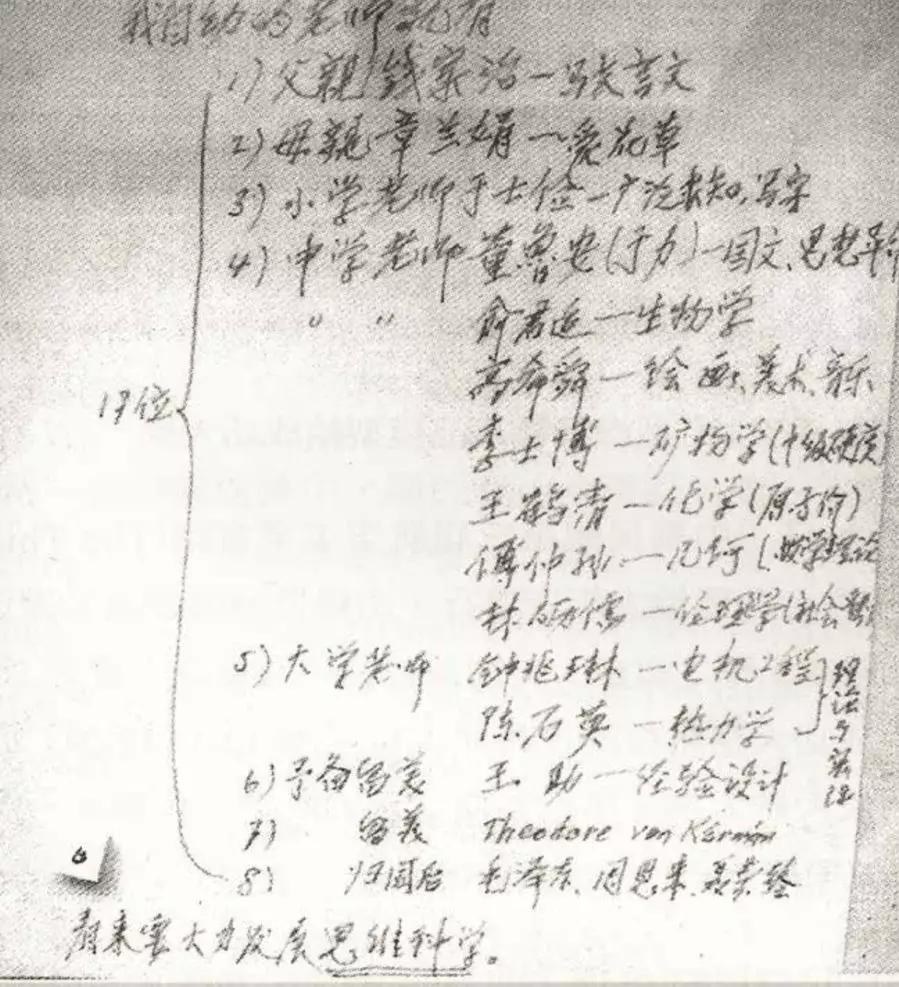 我自幼的老师就有
1) 父亲 钱家治一写文言文
2) 母亲 章兰娟一爱花草
3) 小学老师于士俭一广泛求知,写字
4) 中学老师 董鲁安(于力)一国文、思想革命
〃 〃 俞君适一生物学
高希舜一绘画、美术、音乐
李士博一矿物学(十级硬度)
王鹤清一化学(原子价)
傅仲孙一几何(数学理论
林砺儒一伦理学(社会
17位
5) 大学老师 钟兆琳一电机工程
陈石英一热力学
理论与实际
6) 予备留美 王助一经验设计
7) 留美 Theodore von Kármán
8) 归国后 毛泽东、周恩来、聂荣臻
看来要大力发展思维科学。